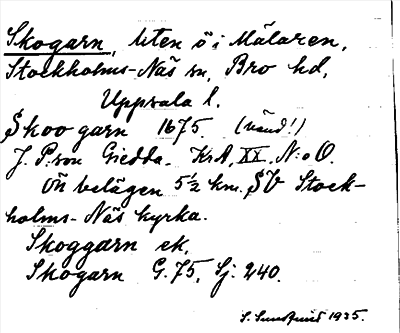 Skogarn, liten ö i Mälaren,
Stockholms-Näs sn, Bro hd,
Uppsala l.
Skoo garn 1675. (vänd!)
J. P:son Giedda. KrA, XX, N:o O.
Ön belägen 5½ km. SV Stock-
holms-Näs kyrka.
Skoggarn ek.
Skogarn G. 75, Sj. 240.
S. Sundquist 1935.